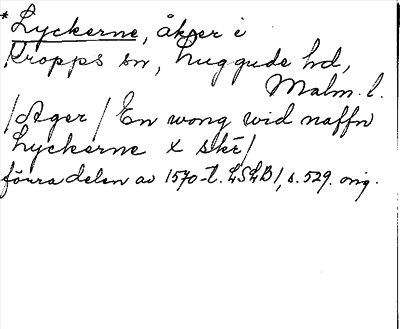 * Lyckerne, åker i
Kropps sn, Luggude hd,
Malm. l.
/Ager/ En wong wid naffn
Lyckerne x skē/
förra delen av 1570-t. LSLB 1, s. 529. orig.